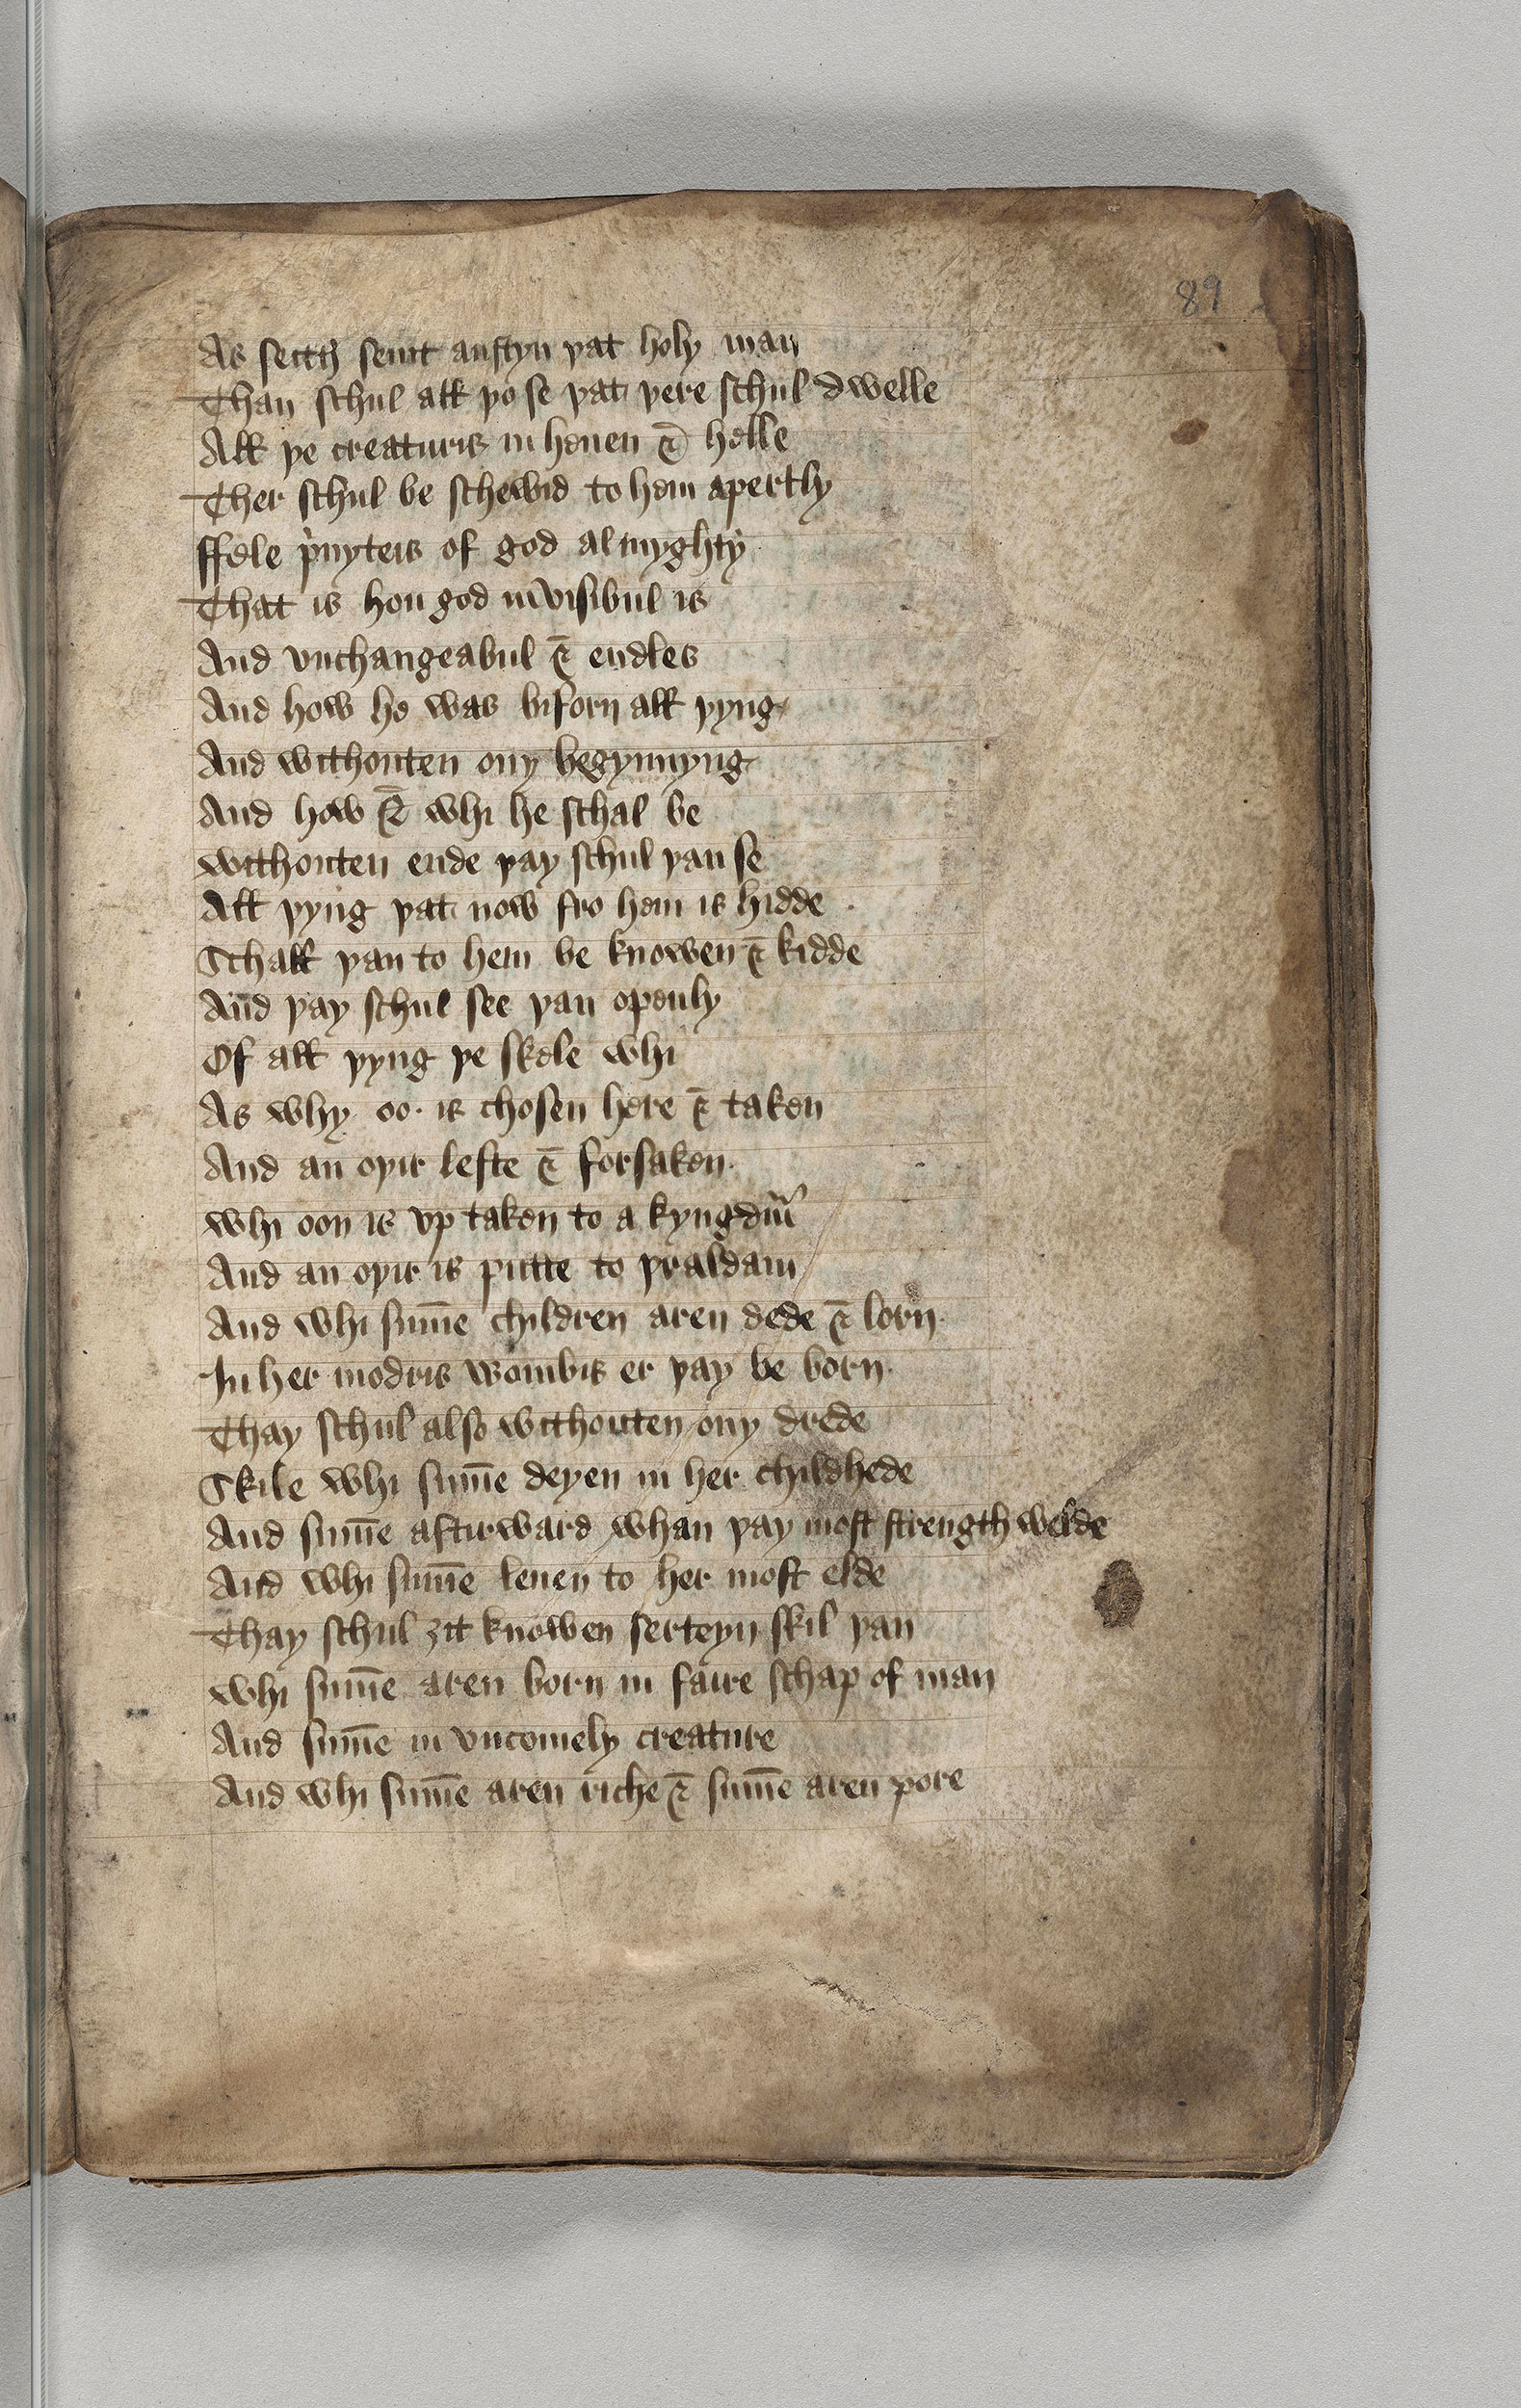 89
As seith seint austyn þat holy man
Than schul all þo se þat þere schul dwelle
All þe creaturis in heuen & helle
Ther schul be schewid to hem apertly
ffele of god almyghty
That is hou god invisibul is
And vnchangeabul & endles
And how he was biforn all þyng
And withouten ony begynnyng
And how & whi he schal be
withouten ende þay schul þan se
All þyng þat now fro hem is hidde
Schall þan to hem be knowen & kidde
And þay schul see þan openly
Of all þyng þe skele whi
As why oo· is chosen here & taken
And an oþir lefte & forsaken·
whi oon is vp taken to a kyngdm̄
And an oþir is putte to þraldam
And whi sum̄e children aren dede & lorn·
In her modris wombis er þay be born·
Thay schul also withouten ony drede
Skile whi sum̄e deyen in her childhede
And sum̄e aftirward whan þay most strength welde
And whi sum̄e leuen to her most elde
Thay schul ȝit knowen serteyn skil þan
whi sum̄e aren born in faire schap of man
And sum̄e in vncomely creature
And whi sum̄e aren riche & sum̄e aren pore